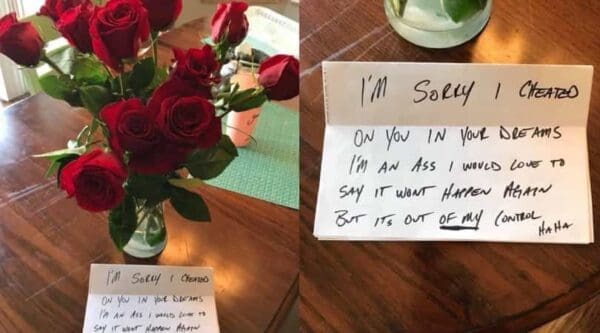 I'M SORRY I CHEATED
ON YOU IN YOUR DREAMS
I'M AN ASS I WOULD LOVE TO
SAY IT WONT HAPPEN AGAIN
I'M SORRY I CHEATED
ON YOU IN YOUR DREAMS
I'M AN ASS I WOULD LOVE TO
SAY IT WONT HAPPEN AGAIN
BUT ITS OUT OF MY CONTROL
HAHA